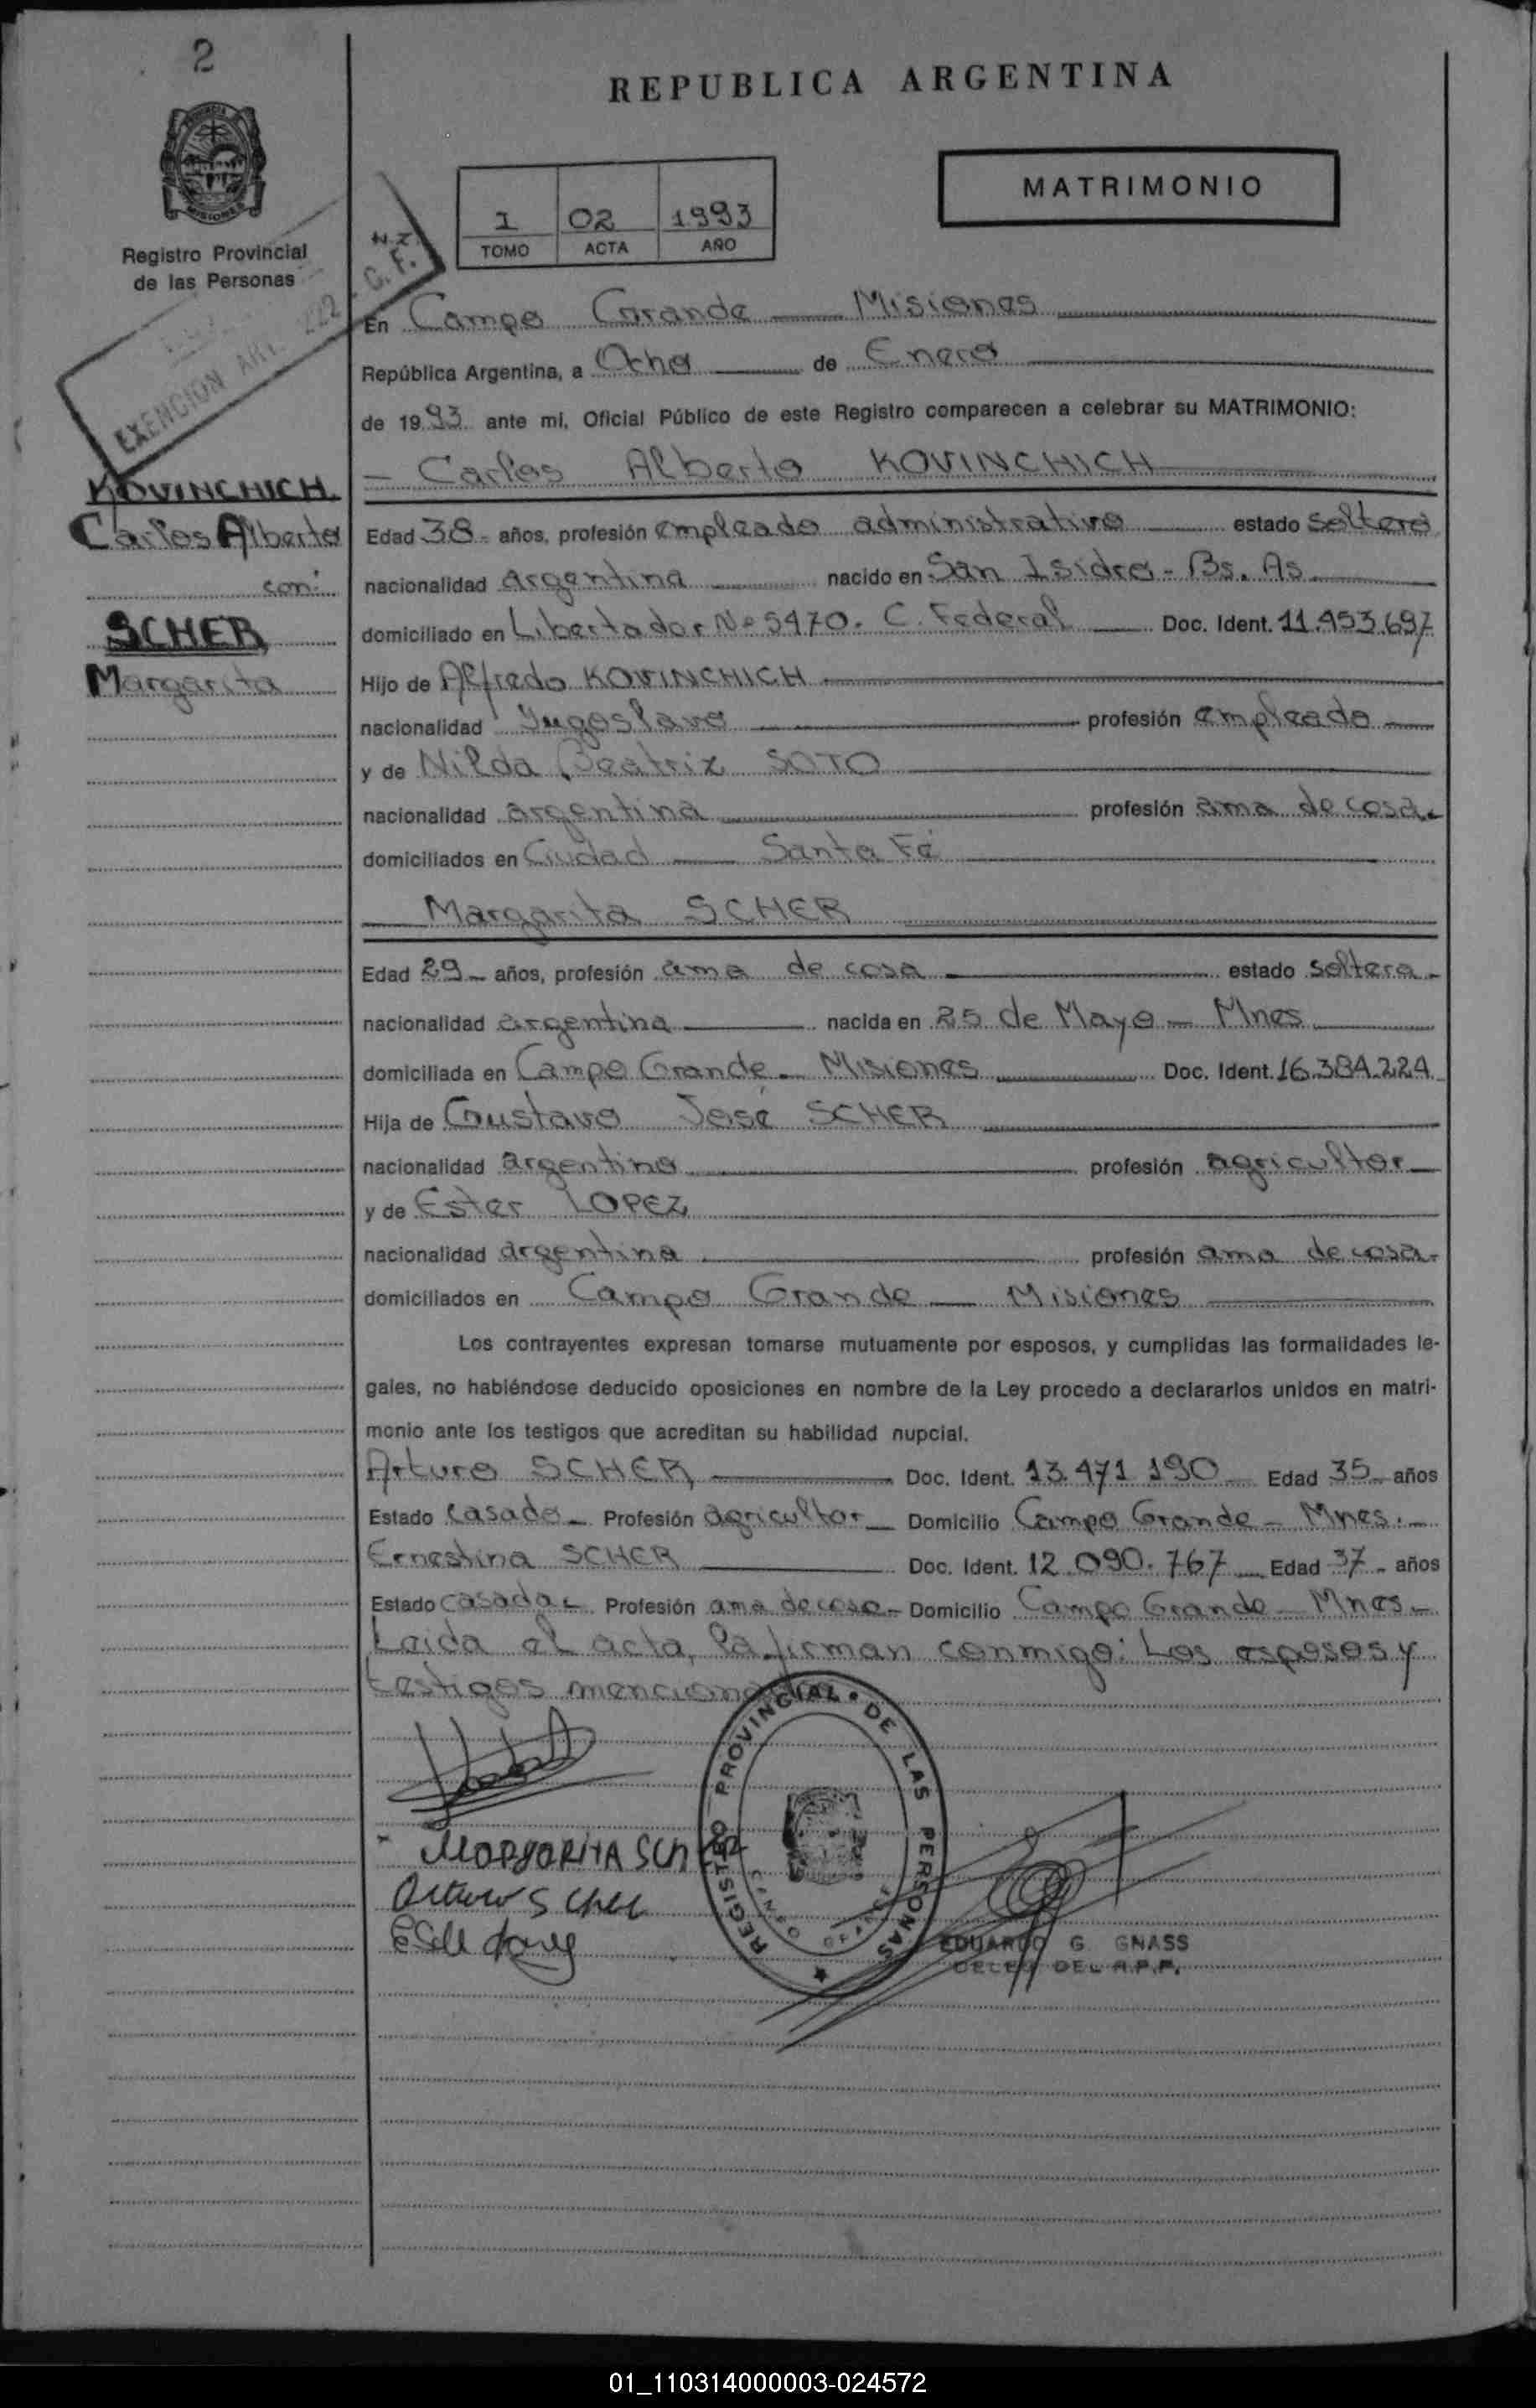 2
REPUBLICA ARGENTINA
MATRIMONIO
1 02 1993
TOMO ACTA AÑO
Registro Provincial
de las Personas
EXENCION ART. 222 C. F.
En Campo Grande Misiones
República Argentina, a Ocho de Enero
de 1993 ante mi, Oficial Público de este Registro comparecen a celebrar su MATRIMONIO:
- Carlos Alberto KOVINCHICH
KOVINCHICH
Carlos Alberto
con:
SCHER
Margarita
Edad 38- años, profesión empleado administrativo estado soltero
nacionalidad argentina nacido en San Isidro - Bs. As.
domiciliado en Libertador Nº 5470. C. Federal Doc. Ident. 11.453.697
Hijo de Alfredo KOVINCHICH
nacionalidad Yugoslavo profesión empleado
y de Nilda Beatriz SOTO
nacionalidad argentina profesión ama de casa.
domiciliados en Ciudad Santa Fé
Margarita SCHER
Edad 29- años, profesión ama de casa estado soltera-
nacionalidad argentina nacida en 25 de Mayo - Mnes
domiciliada en Campo Grande - Misiones Doc. Ident. 16.384.224
Hija de Gustavo José SCHER
nacionalidad argentino profesión agricultor
y de Ester LOPEZ
nacionalidad argentina profesión ama de casa-
domiciliados en Campo Grande - Misiones
Los contrayentes expresan tomarse mutuamente por esposos, y cumplidas las formalidades le-
gales, no habiéndose deducido oposiciones en nombre de la Ley procedo a declararlos unidos en matri-
monio ante los testigos que acreditan su habilidad nupcial.
Arturo SCHER Doc. Ident. 13.471.190 Edad 35- años
Estado casado- Profesión agricultor- Domicilio Campo Grande - Mnes.-
Ernestina SCHER Doc. Ident. 12.090.767 Edad 37- años
Estado casada- Profesión ama de casa- Domicilio Campo Grande - Mnes-
Leida el acta, la firman conmigo: Los esposos y
testigos mencionados
MARGARITA SCHER
Arturo Scher
REGISTRO PROVINCIAL DE LAS PERSONAS
CAMPO GRANDE
EDUARDO G. GNASS
DELEG DEL R.P.P.
01_110314000003-024572